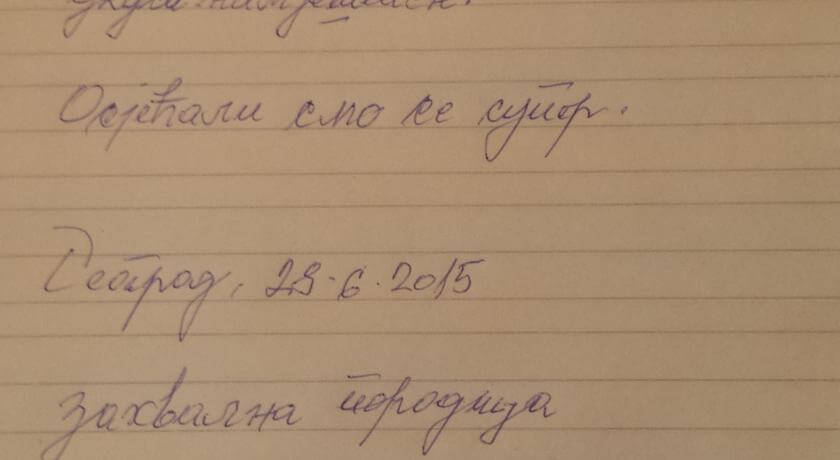 Осјећали смо се супер.
Београд, 29.6.2015
захвална породица